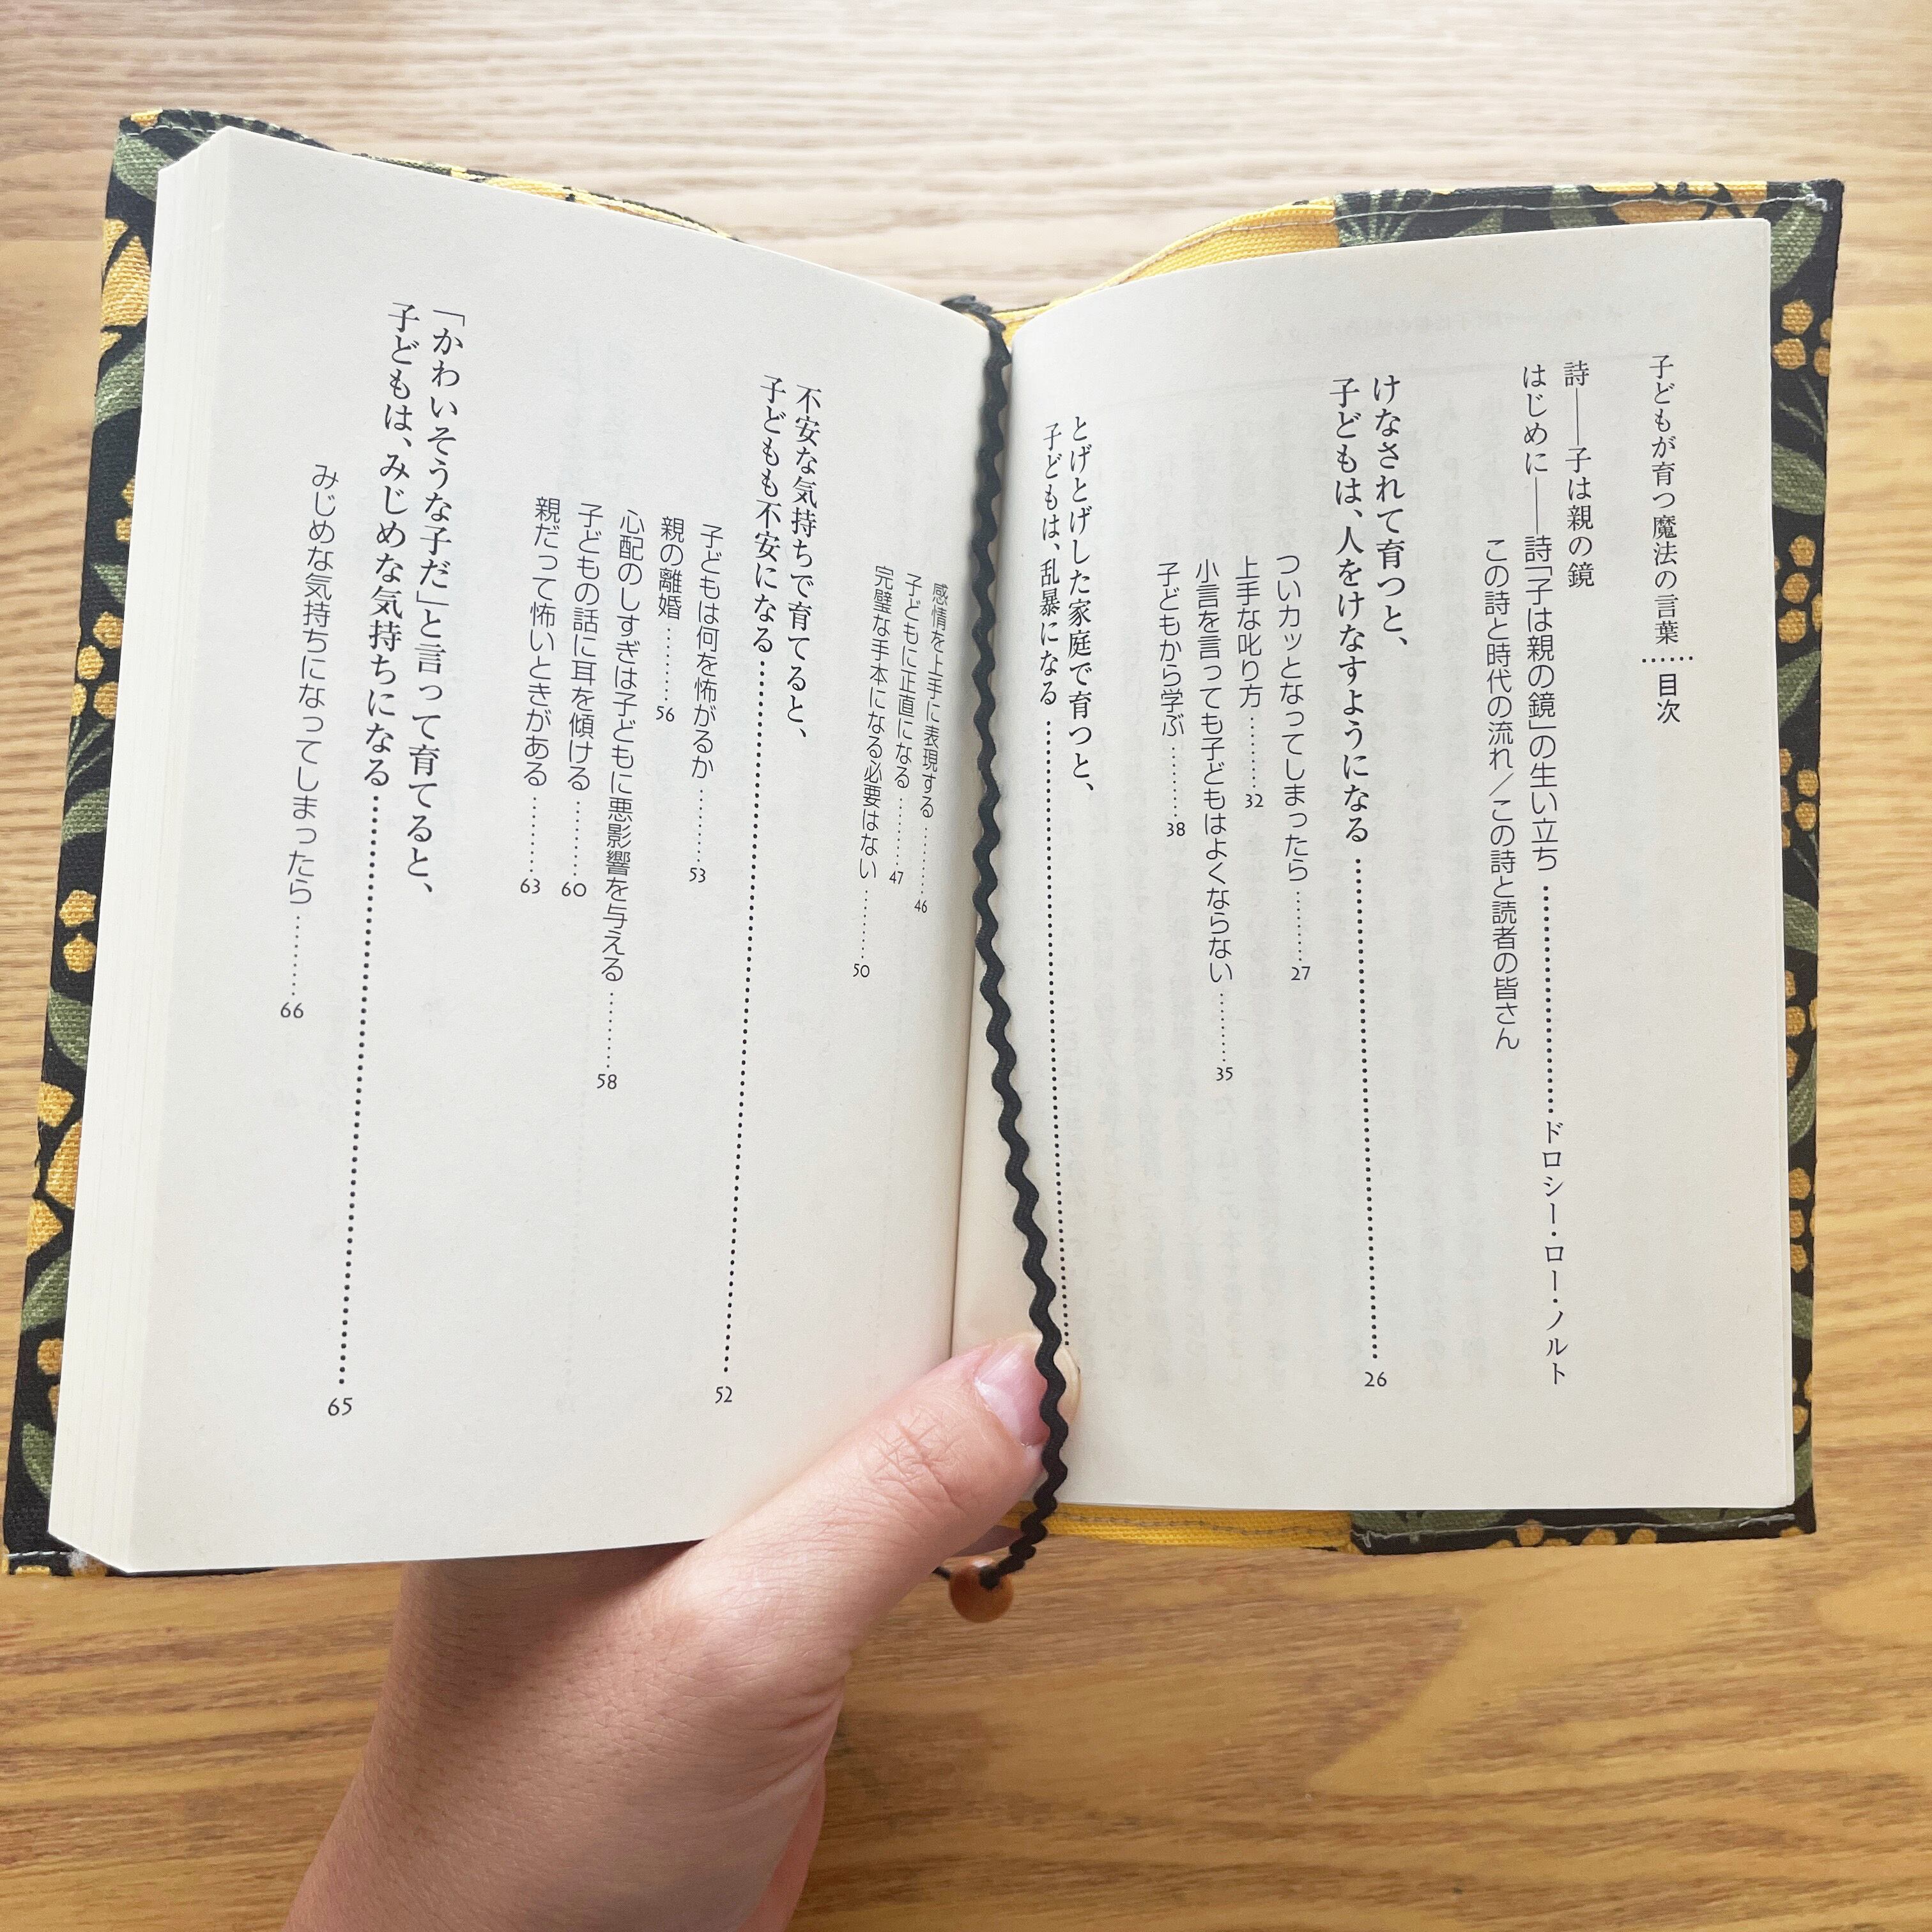 子どもが育つ魔法の言葉……目次
詩――子は親の鏡
はじめに――詩「子は親の鏡」の生い立ち……………………ドロシー・ロー・ノルト
この詩と時代の流れ／この詩と読者の皆さん
けなされて育つと、
子どもは、人をけなすようになる……………………26
ついカッとなってしまったら………27
上手な叱り方………32
小言を言っても子どもはよくならない………35
子どもから学ぶ………38
とげとげした家庭で育つと、
子どもは、乱暴になる……………………
感情を上手に表現する………46
子どもに正直になる………47
完璧な手本になる必要はない………50
不安な気持ちで育てると、
子どもも不安になる……………………52
子どもは何を怖がるか………53
親の離婚………56
心配のしすぎは子どもに悪影響を与える………58
子どもの話に耳を傾ける………60
親だって怖いときがある………63
「かわいそうな子だ」と言って育てると、
子どもは、みじめな気持ちになる……………………65
みじめな気持ちになってしまったら………66